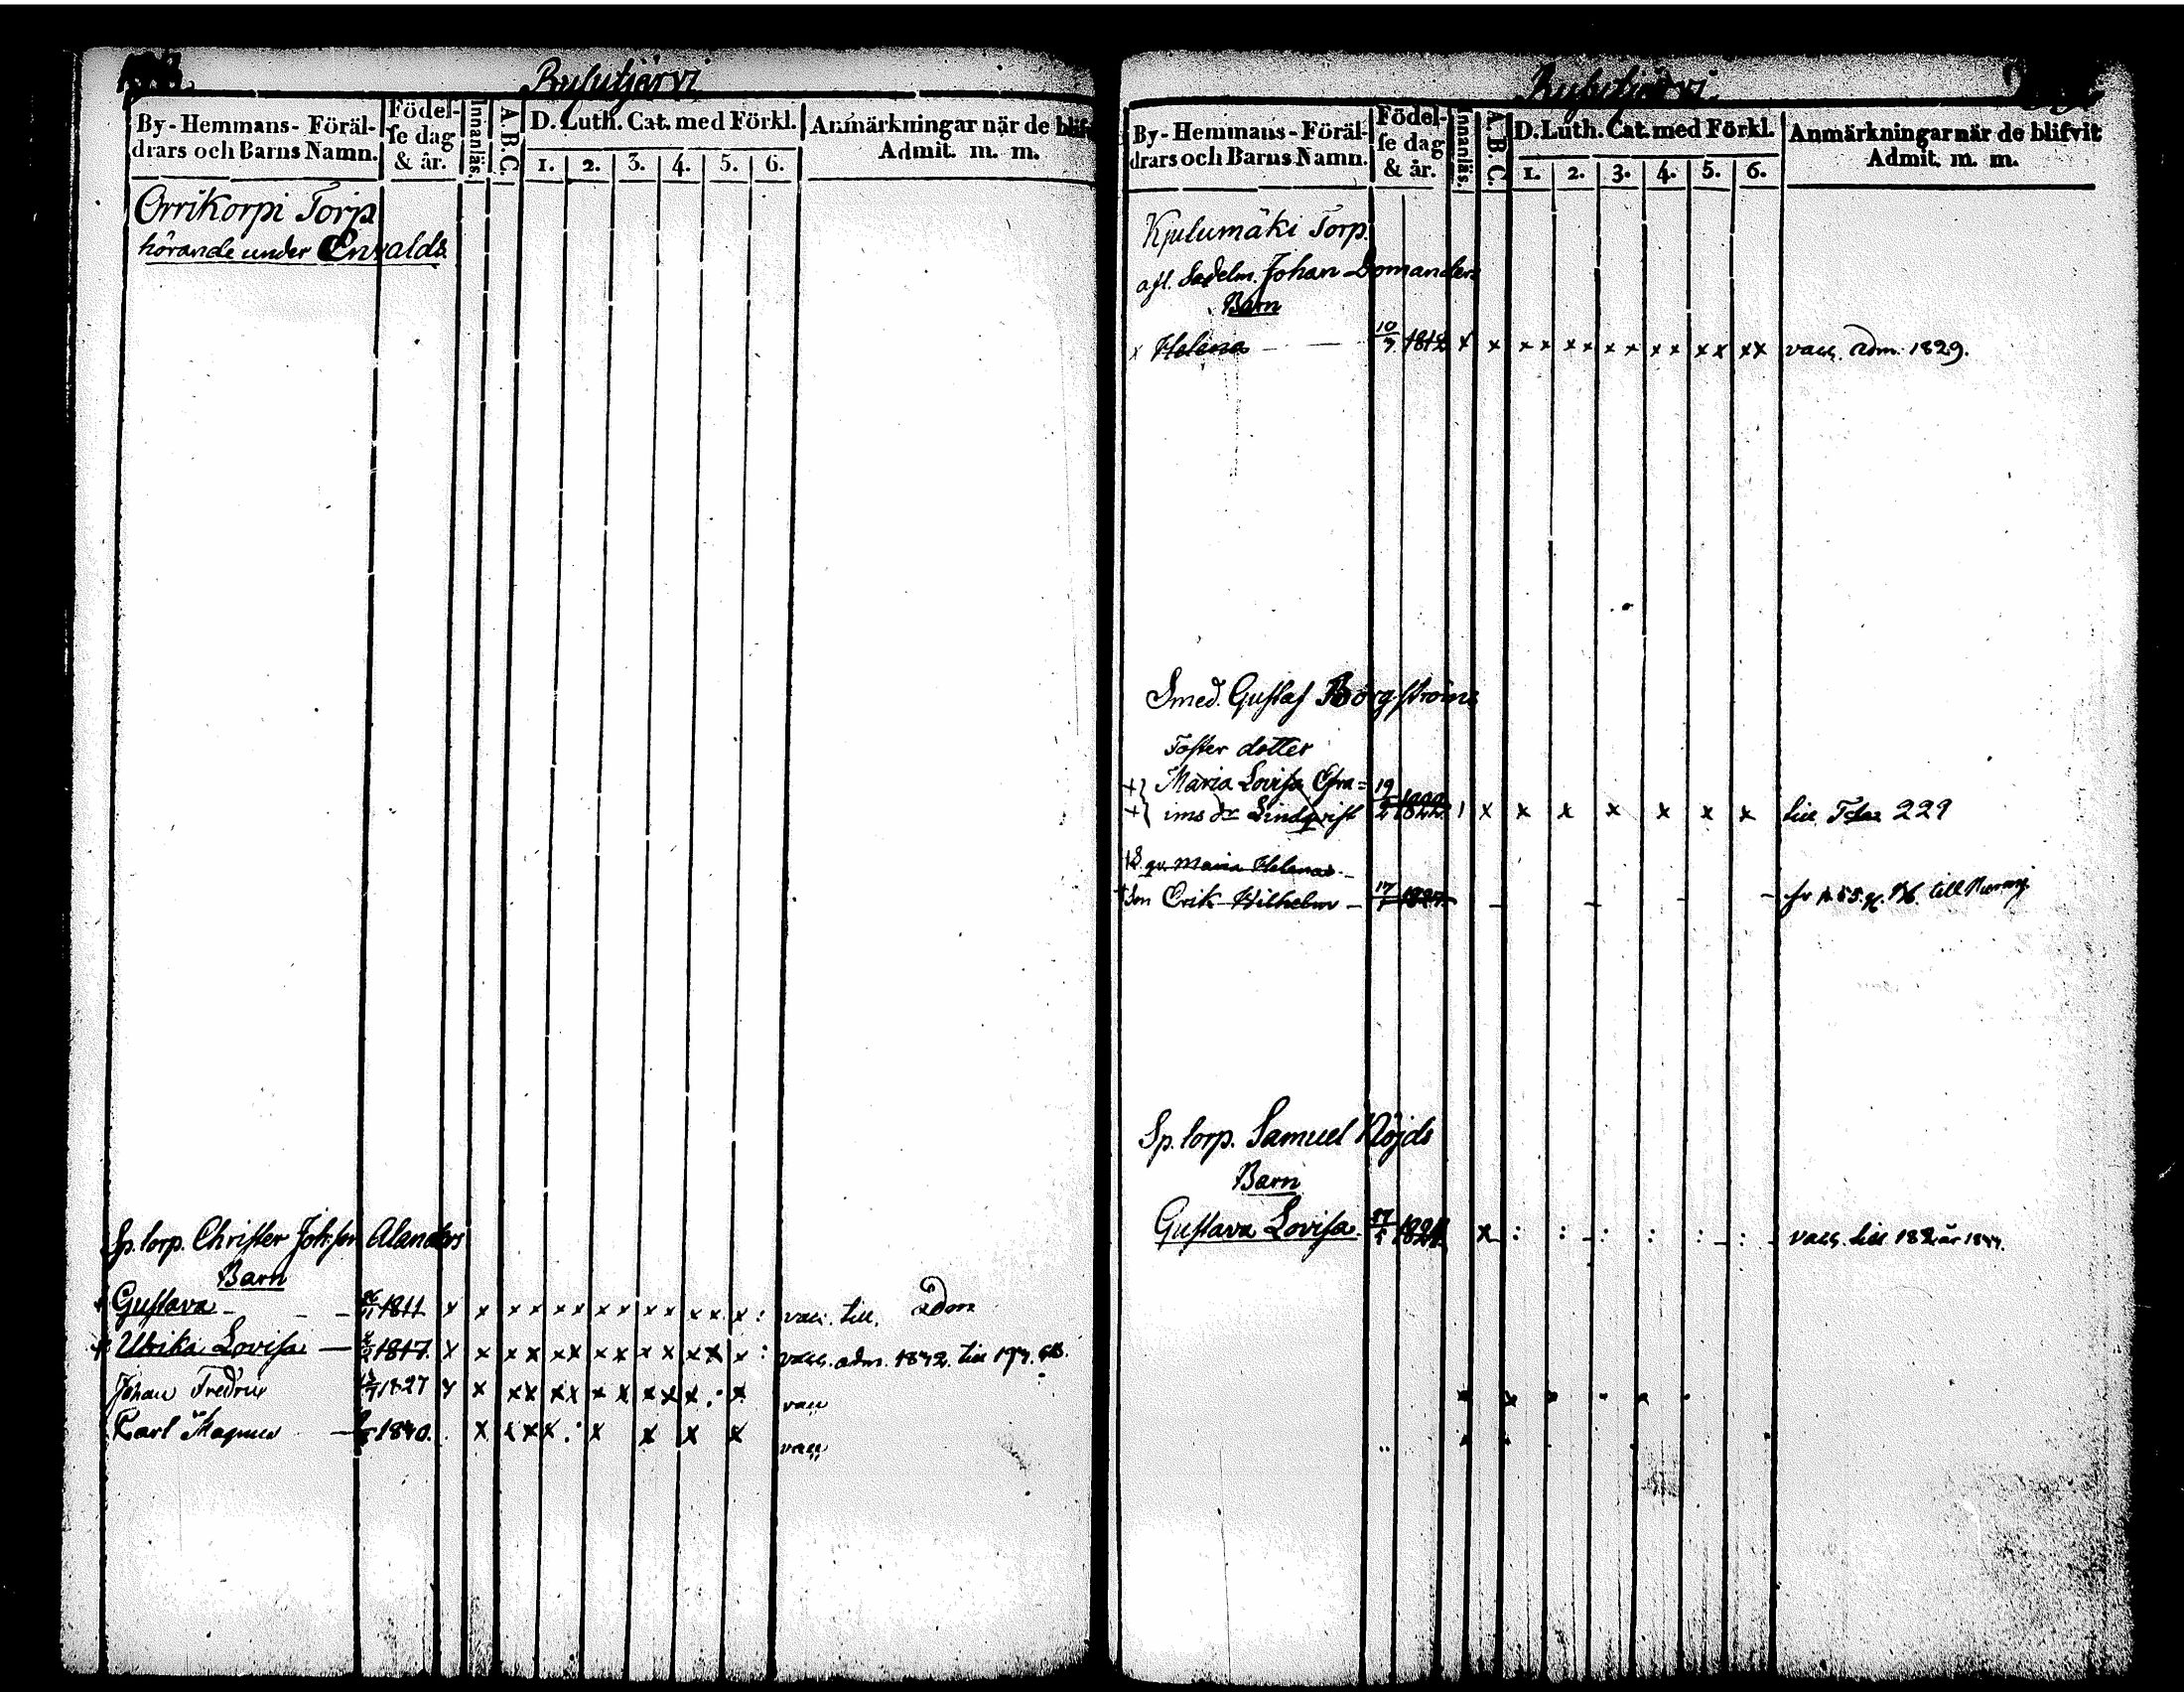 By-Hemmans-Föräl-
drars och Barns Namn.
Födel-
se dag
& år.
Innanläs.
A.B.C.
D. Luth. Cat. med Förkl.
1. 2. 3. 4. 5. 6.
Anmärkningar när de blifv
Admit. m. m.
Orrikorpi Torp
hörande under Envalds
Sp. torp. Christer Joh:son Alanders
Barn
Gustava 1811 x x x x x x x x x x x x x : vacc. till. adm
Ulrika Lovisa 1817 x x x x x x x x x x x x x : vacc. adm. 1842. till
Johan Fredric 1827 x x x x x x x x x x x : x vacc
Carl Magnus 1840. x x x x : x x x x vacc
By-Hemmans-Föräl-
drars och Barns Namn.
Födel-
se dag
& år.
Innanläs.
A.B.C.
D. Luth. Cat. med Förkl.
1. 2. 3. 4. 5. 6.
Anmärkningar när de blifvit
Admit. m. m.
Kjulumäki Torp.
afl. Sadelm. Johan Domanders
Barn
x Helena 10/7 1812 x x x x x x x x x x x x x x vacc. adm. 1829.
Smed. Gustaf Borgströms
Foster dotter
Maria Lovisa Efra=
ims dr Lindqvist 19/2 1822 x x x x x x x till 229
Maria Helenas
Son Erik Wilhelm 17 1827
Sp. torp. Samuel Nöjds
Barn
Gustava Lovisa. x : : : : : : vacc. till